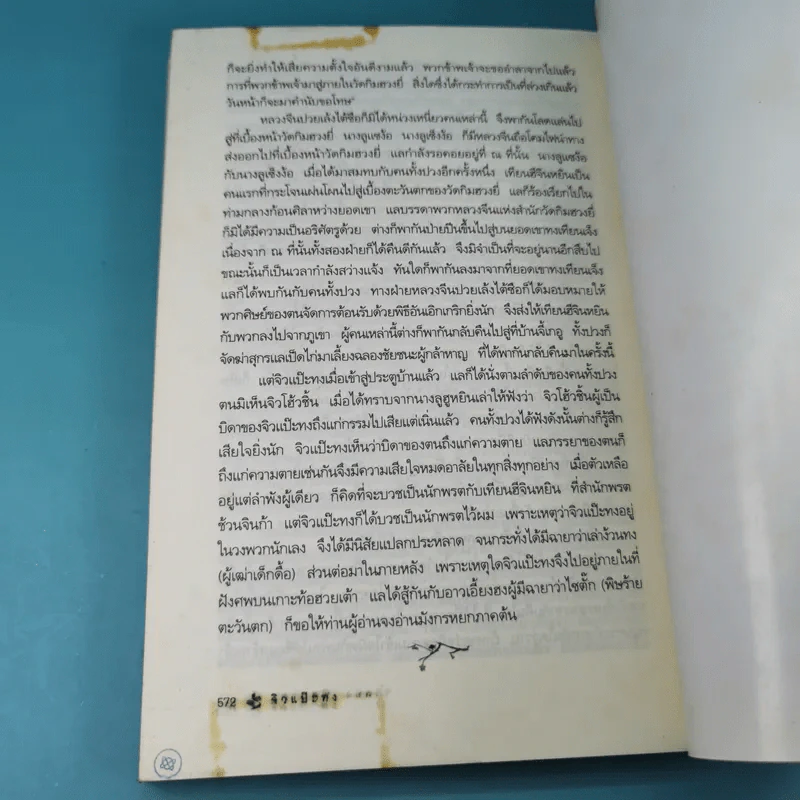 ก็จะยิ่งทำให้เสียความตั้งใจอันดีงามแล้ว พวกข้าพเจ้าจะขออำลาจากไปแล้ว
การที่พวกข้าพเจ้ามาสู่ภายในวัดกิมฮวงยี่ สิ่งใดซึ่งได้กระทำการเป็นที่ล่วงเกินแล้ว
วันหน้าก็จะมาคำนับขอโทษ"
หลวงจีนปวยเล้งไต้ซือก็มิได้หน่วงเหนี่ยวคนเหล่านี้ จึงพากันโลดแล่นไป
สู่ที่เบื้องหน้าวัดกิมฮวงยี่ นางลูแซง้อ นางลูเซ็งง้อ ก็มีหลวงจีนถือโคมไฟนำทาง
ส่งออกไปที่เบื้องหน้าวัดกิมฮวงยี่ แลกำลังรอคอยอยู่ที่ ณ ที่นั้น นางลูแซง้อ
กับนางลูเซ็งง้อ เมื่อได้มาสมทบกับคนทั้งปวงอีกครั้งหนึ่ง เทียนฮีจินหยินเป็น
คนแรกที่กระโจนเผ่นโผนไปสู่เบื้องตะวันตกของวัดกิมฮวงยี่ แลก็ร้องเรียกไปใน
ท่ามกลางก้อนศิลาหว่างยอดเขา แลบรรดาพวกหลวงจีนแห่งสำนักวัดกิมฮวงยี่
ก็มิได้มีความเป็นอริศัตรูด้วย ต่างก็พากันป่ายปีนขึ้นไปสู่บนยอดเขาทงเทียนเจ็ง
เนื่องจาก ณ ที่นั้นทั้งสองฝ่ายก็ได้คืนดีกันแล้ว จึงมิจำเป็นที่จะอยู่นานอีกสืบไป
ขณะนั้นก็เป็นเวลากำลังสว่างแจ้ง ทันใดก็พากันลงมาจากที่ยอดเขาทงเทียนเจ็ง
แลก็ได้พบกันกับคนทั้งปวง ทางฝ่ายหลวงจีนปวยเล้งไต้ซือก็ได้มอบหมายให้
พวกศิษย์ของตนจัดการต้อนรับด้วยพิธีอันเอิกเกริกยิ่งนัก จึงส่งให้เทียนฮีจินหยิน
กับพวกลงไปจากภูเขา ผู้คนเหล่านี้ต่างก็พากันกลับคืนไปสู่ที่บ้านจี้เกอู ทั้งปวงก็
จัดฆ่าสุกรแลเป็ดไก่มาเลี้ยงฉลองชัยชนะผู้กล้าหาญ ที่ได้พากันกลับคืนมาในครั้งนี้
แต่จิวแป๊ะทงเมื่อเข้าสู่ประตูบ้านแล้ว แลก็ได้นั่งตามลำดับของคนทั้งปวง
ตนมิเห็นจิวโฮ้วชิ้น เมื่อได้ทราบจากนางลูฮูหยินเล่าให้ฟังว่า จิวโฮ้วชิ้นผู้เป็น
บิดาของจิวแป๊ะทงถึงแก่กรรมไปเสียแต่เนิ่นแล้ว คนทั้งปวงได้ฟังดังนั้นต่างก็รู้สึก
เสียใจยิ่งนัก จิวแป๊ะทงเห็นว่าบิดาของตนถึงแก่ความตาย แลภรรยาของตนก็
ถึงแก่ความตายเช่นกันจึงมีความเสียใจหมดอาลัยในทุกสิ่งทุกอย่าง เมื่อตัวเหลือ
อยู่แต่ลำพังผู้เดียว ก็คิดที่จะบวชเป็นนักพรตกับเทียนฮีจินหยิน ที่สำนักพรต
ช้วนจินก้า แต่จิวแป๊ะทงก็ได้บวชเป็นนักพรตไว้ผม เพราะเหตุว่าจิวแป๊ะทงอยู่
ในวงพวกนักเลง จึงได้มีนิสัยแปลกประหลาด จนกระทั่งได้มีฉายาว่าเล่าง้วนทง
(ผู้เฒ่าเด็กดื้อ) ส่วนต่อมาในภายหลัง เพราะเหตุใดจิวแป๊ะทงจึงไปอยู่ภายในที่
ฝังศพบนเกาะท้อฮวยเต้า แลได้สู้กันกับอาวเอี้ยงฮงผู้มีฉายาว่าไซตั๊ก (พิษร้าย
ตะวันตก) ก็ขอให้ท่านผู้อ่านจงอ่านมังกรหยกภาคต้น
572 จิวแป๊ะทง